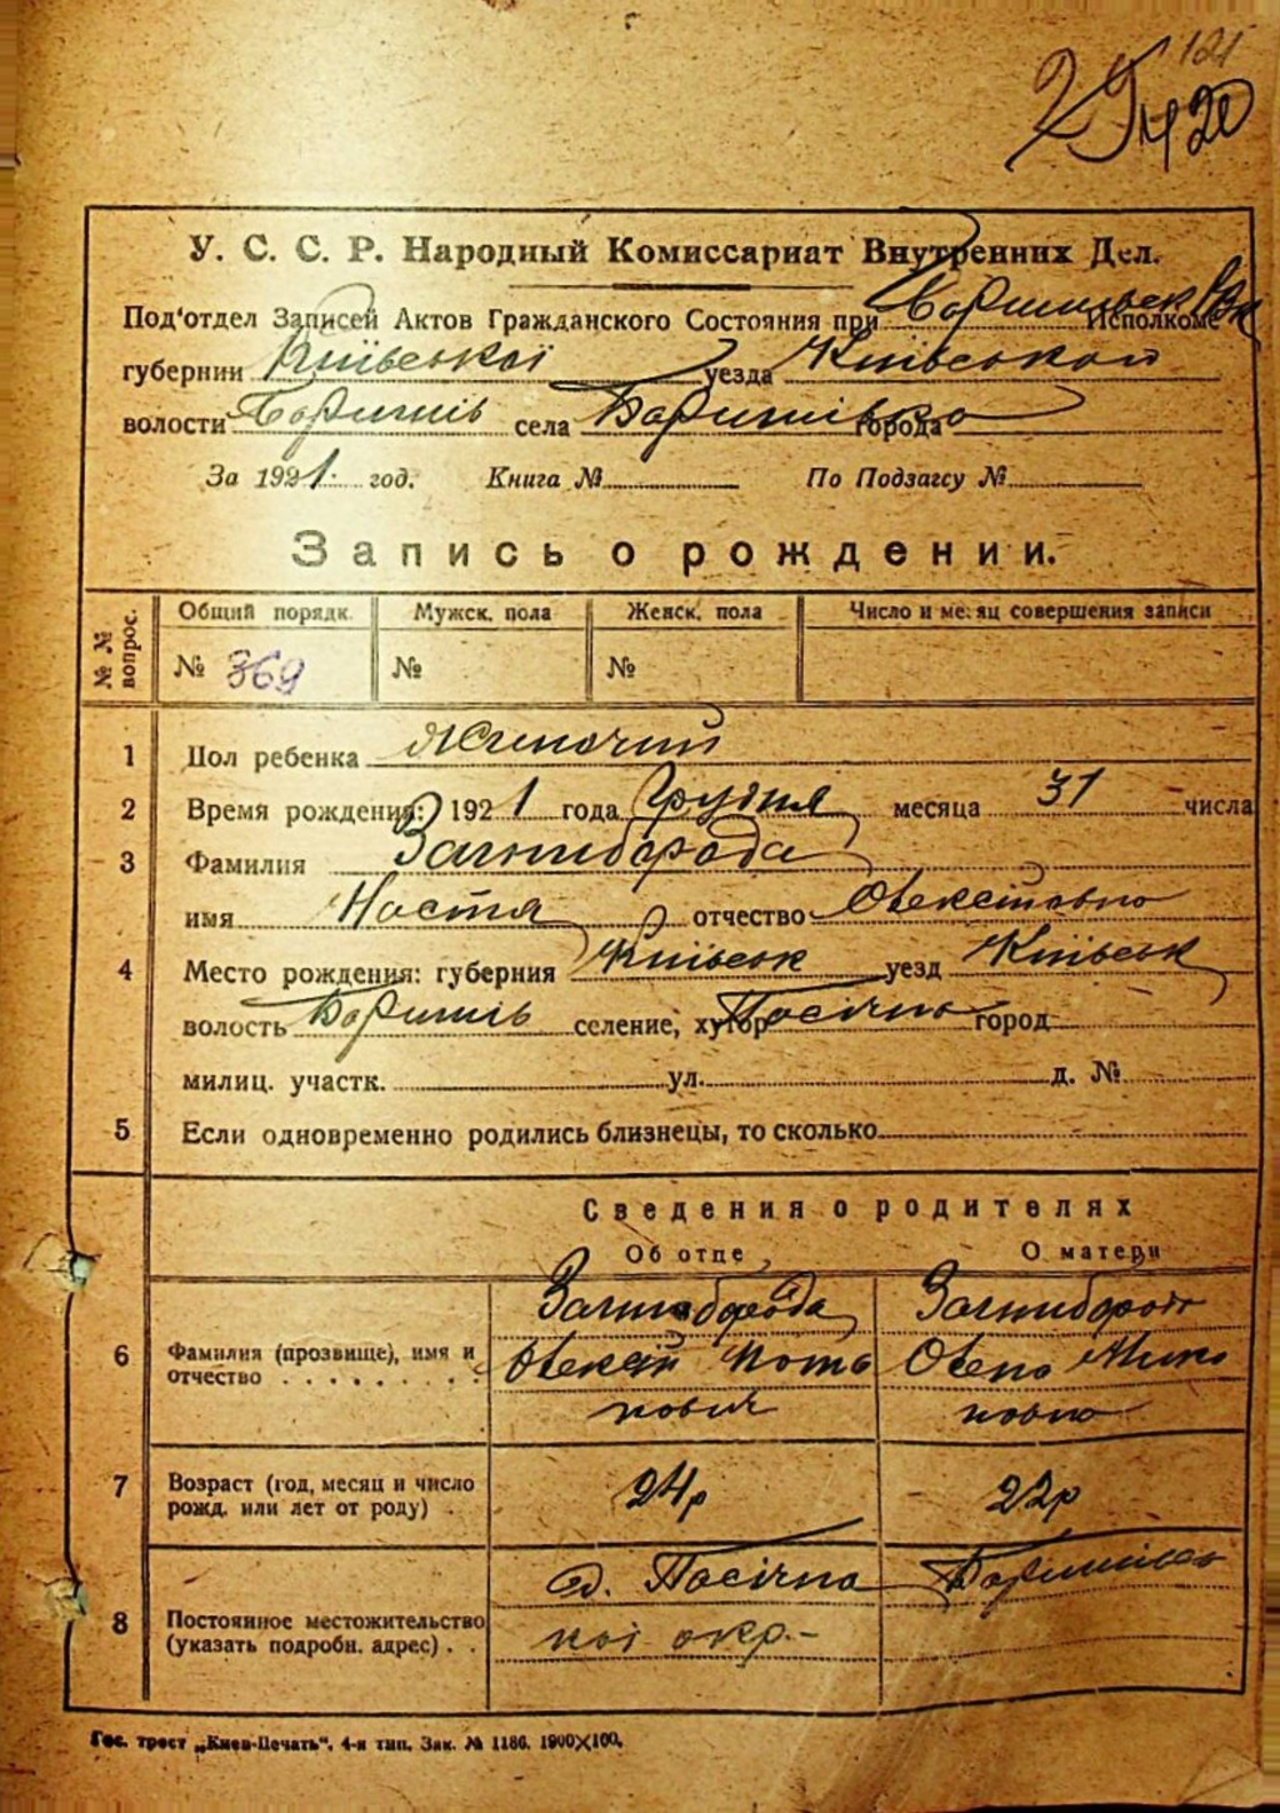 121
29
420
У. С. С. Р. Народный Комиссариат Внутренних Дел.
Под'отдел Записей Актов Гражданского Состояния при Исполкоме
губернии Київської уезда Київськой
волости Баришів села Баришівка города
За 1921 год. Книга № По Подзагсу №
Запись о рождении.
№ № вопрос. Общий порядк. Мужск. пола Женск. пола Число и месяц совершения записи
№ 369 № №
1 Пол ребенка Жиночий
2 Время рождения: 1921 года Грудня месяца 31 числа
3 Фамилия Загниборода
имя Настя отчество
4 Место рождения: губерния Київськ уезд Київськ
волость Баришів селение, хутор Пасічна город
милиц. участк. ул. д. №
5 Если одновременно родились близнецы, то сколько
Сведения о родителях
Об отце О матери
Загниборода Загнибород
6 Фамилия (прозвище), имя и
отчество
нович новна
7 Возраст (год, месяц и число 24р 22р
рожд. или лет от роду)
д. Пасічна Баришівсь
8 Постоянное местожительство
(указать подробн. адрес) кої окр.-
Гос. трест „Киев-Печать“. 4-я тип. Зак. № 1186. 1900×100.